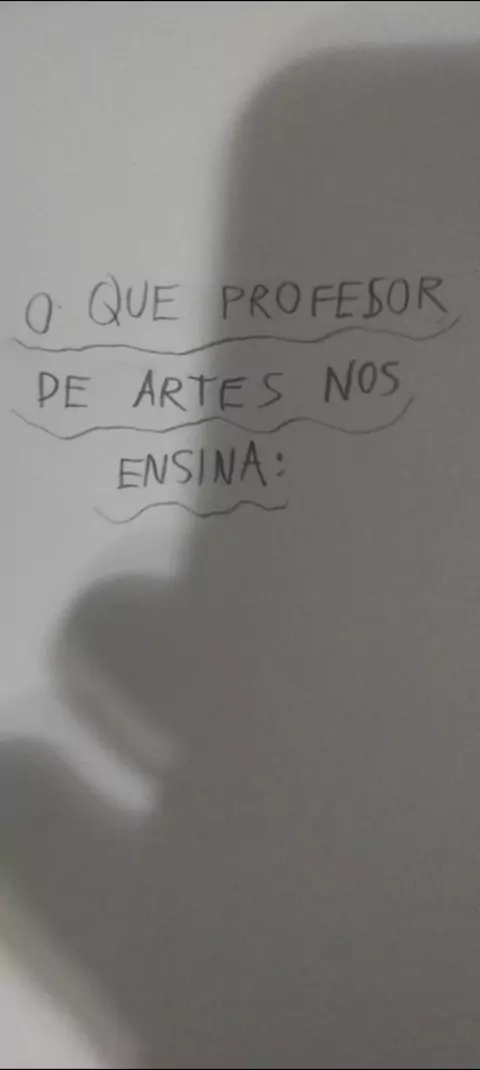 O QUE PROFESOR
DE ARTES NOS
ENSINA: